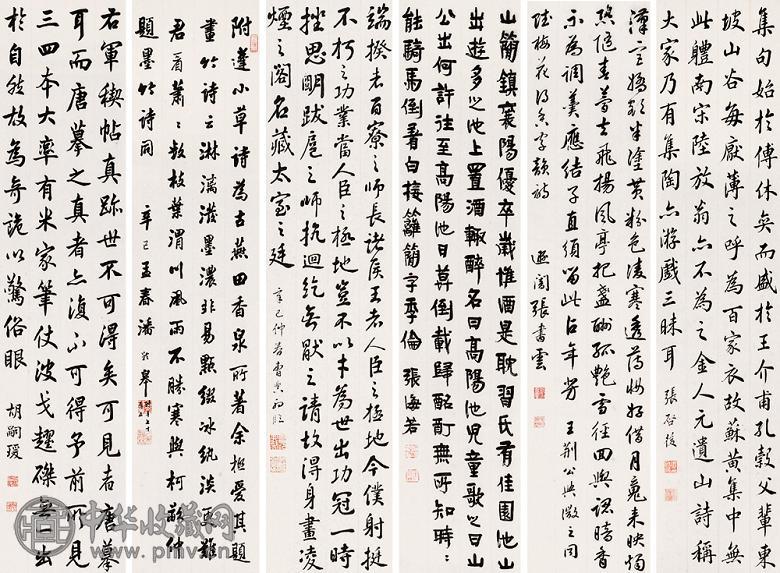 集句始於傅休奕而盛於王介甫孔毅父輩東
坡山谷每厭薄之呼為百家衣故蘇黃集中無
此體南宋陸放翁亦不為之金人元遺山詩稱
大家乃有集陶亦游戲三昧耳 張啓後
漢宮嬌額半塗黃粉色凌寒透薄妝好借月魂來映燭
恐隨春夢去飛揚風亭把盞酬孤艷雪徑回輿認暗香
不為調羹應結子直須留此占年芳 王荊公與微之同
賦梅花得香字韻詩 張書雲
山簡鎮襄陽優卒歲惟酒是耽習氏有佳園池山
出遊多之池上置酒輒醉名曰高陽池兒童歌之曰山
公出何許往至高陽池日莫倒載歸酩酊無所知時=
能騎馬倒著白接籬簡字季倫 張海若
端揆者百寮之師長諸侯王者人臣之極地今僕射挺
不朽之功業當人臣之極地豈不以才為世出功冠一時
挫思明跋扈之師抗迴紇無厭之請故得身畫凌
煙之閣名藏太室之廷 辛巳仲春
附蓬小草詩為古燕田香泉所著余極愛其題
畫竹詩云淋漓潑墨濃非易顆綴冰紈淡更難
君看蕭=數枝葉渭川風雨不勝寒與柯敬仲
題墨竹詩同 辛巳孟春潘齡皋
右軍稧帖真跡世不可得矣可見者唐摹
耳而唐摹之真者亦復不可得予前所見
三四本大率有米家筆仗波戈趯磔無一出
於自然故為奇詭以驚俗眼 胡嗣瑗
中华收藏网